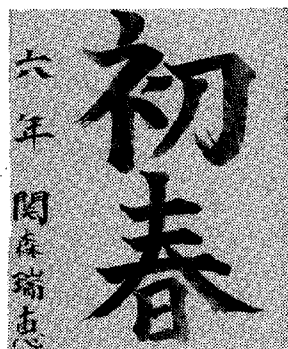 初春
六年 関森瑞恵